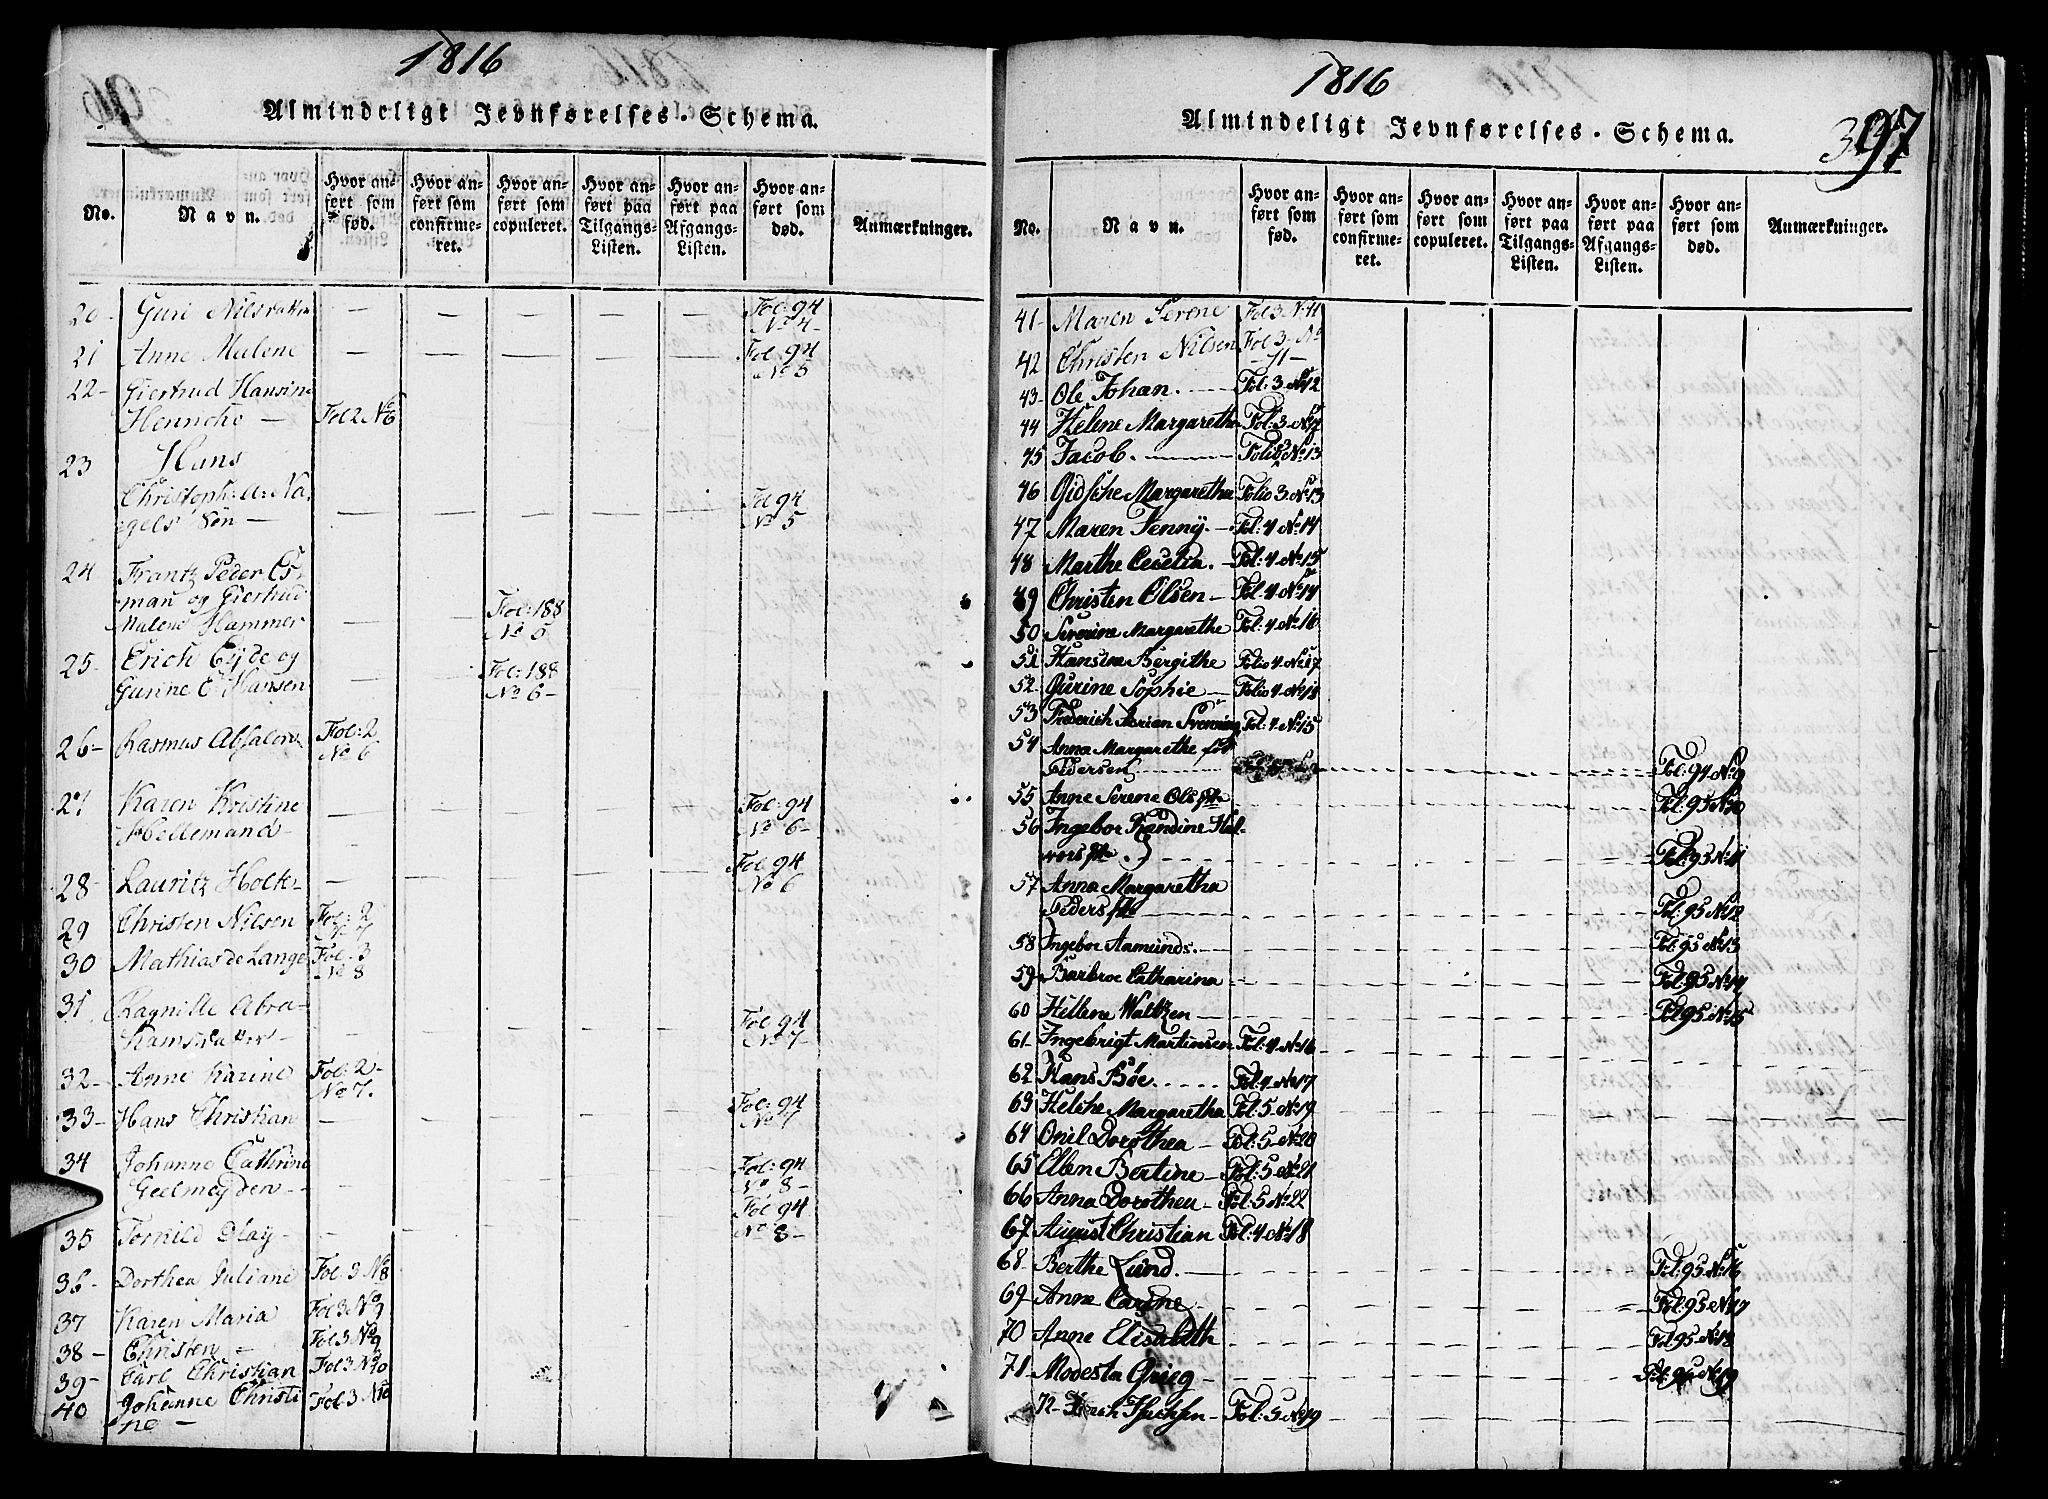 1816
Almindeligt Jevnførelses-Schema.
No. Navn. Hvor anført som fød. Hvor anført som confirmeret. Hvor anført som copuleret. Hvor anført paa Tilgangs-Listen. Hvor anført paa Afgangs-Listen. Hvor anført som død. Anmærkninger.
20- Guri Nilsdatter — — — — — Fol: 94 No 4-
21 Anne Malene — — — — — Fol: 94 No 5
22- Giertrud Hansine
Henriche — Fol 2 No 6
23 Hans
Christoph: a: Na-
gels Søn — — — — — — Fol 94 No 5
24 Frantz Peder Es-
man og Giertrud
Malene Hammer — — Fol: 188 No 5
25- Erich Eyde og
Gurine E. Hansen — — Fol: 188 No 6-
26- Rasmus Absalon Fol: 2 No 6
27 Karen Kristine
Hellemand — — — — — — Fol: 94 No 6-
28- Lauritz Holte- — — — — — Fol: 94 No 6
29 Christen Nilsen Fol: 2 No 7
30 Mathias de Lange Fol: 3 No 8
31 Ragnille Abra-
hamsdatter — — — — — — Fol: 94 No 7-
32- Anne Karine Fol: 2- No 7.
33- Hans Christian — — — — — Fol: 94 No 7
34 Johanne Cathrine
Geelmeyden — — — — — — Fol: 94 No 8-
35 Tornild Olay- — — — — — Fol: 94 No 8-
36- Dorthea Juliane Fol: 3 No 8
37 Karen Maria Fol 3 No 9
38- Christen — Fol 3 No 9
39- Carl Christian Fol 3 No 10
40 Johanne Christi Fol 3 No 10
ne —
1816
97
Almindeligt Jevnførelses-Schema.
No. Navn. Hvor anført som fød. Hvor anført som confirmeret. Hvor anført som copuleret. Hvor anført paa Tilgangs-Listen. Hvor anført paa Afgangs-Listen. Hvor anført som død. Anmærkninger.
41- Maren Serene Fol 3 No 11
42 Christen Nilsen Fol 3. No -11-
43- Ole Johan. Fol: 3 No 12
44 Helene Margarethe Fol: 3 No 12
45 Jacob. Folio 3 No 13
46 Gidsche Margaretha Folio 3 No 13
47 Maren Jenny. Fol: 4 No 14
48 Marthe Cecelia. Fol: 4 No 15
49 Christen Olsen — Fol: 4 No 14
50 Severine Margarethe Fol: 4 No 16
51 Hansine Bergithe Folio 4 No 17
52- Gurine Sophie — Folio 4 No 18
53 Frederich Adrian Svenning Fol: 4 No 15
54 Anna Margarethe fød
Pedersen Fol: 94 No 9
55 Anne Serene Ols fd: Fol: 95 No 10
56 Ingebor Randine Hal-
vors fd: Fol: 95 No 11
57 Anna Margaretha
Peders fd: Fol: 95 No 12
58 Ingebor Aamunds. Fol: 95 No 13
59- Barbroe Catharina Fol: 95 No 14
60 Hellene Waltzen Fol 95 No 15
61- Ingebrigt Martinsen Fol: 4 No 16
62 Hans Bøe Fol: 4 No 17
63 Helche Margaretha Fol: 5 No 19
64 Onil Dorothea — Fol: 5 No 20
65 Ellen Bertine — Fol: 5 No 21
66 Anna Dorothea — Fol: 5 No 22
67 August Christian Fol: 4 No 18
68- Berthe Lund. Fol: 95 No 16
69- Anne Carine Fol: 95 No 17
70 Anne Elisabeth Fol 95 No 18
71- Modesta Grieg Fol: 95 No 19
72- Isachsen — Fol: 5 No 19